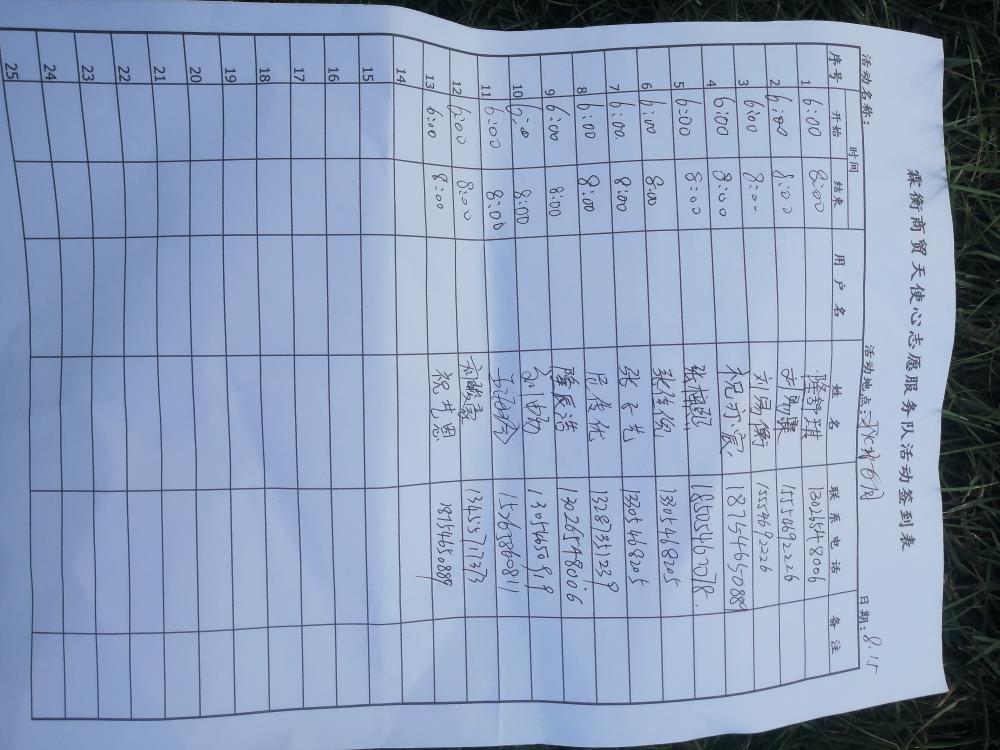 霖衡商贸天使心志愿服务队活动签到表
活动名称： 活动地点： 日期：8.15
序号 时间 用户名 姓名 联系电话 备注
开始 结束
1 6:00 8:00 隆舒琪 13026548006
2 6:00 8:00 15554692226
3 6:00 8:00 刘易衡 15554692226
4 6:00 8:00 祝亦宸 18754650889
5 6:00 8:00 18505462078
6 6:00 8:00 张佳俊 13305468205
7 6:00 8:00 张子艺 13305468205
8 6:00 8:00 周佳优 13287351239
9 6:00 8:00 隆辰浩 13026548006
10 6:00 8:00 13054650919
11 6:00 8:00 15263860811
12 6:00 8:00 13455717373
13 6:00 8:00 祝艺恩 18754650889
14
15
16
17
18
19
20
21
22
23
24
25